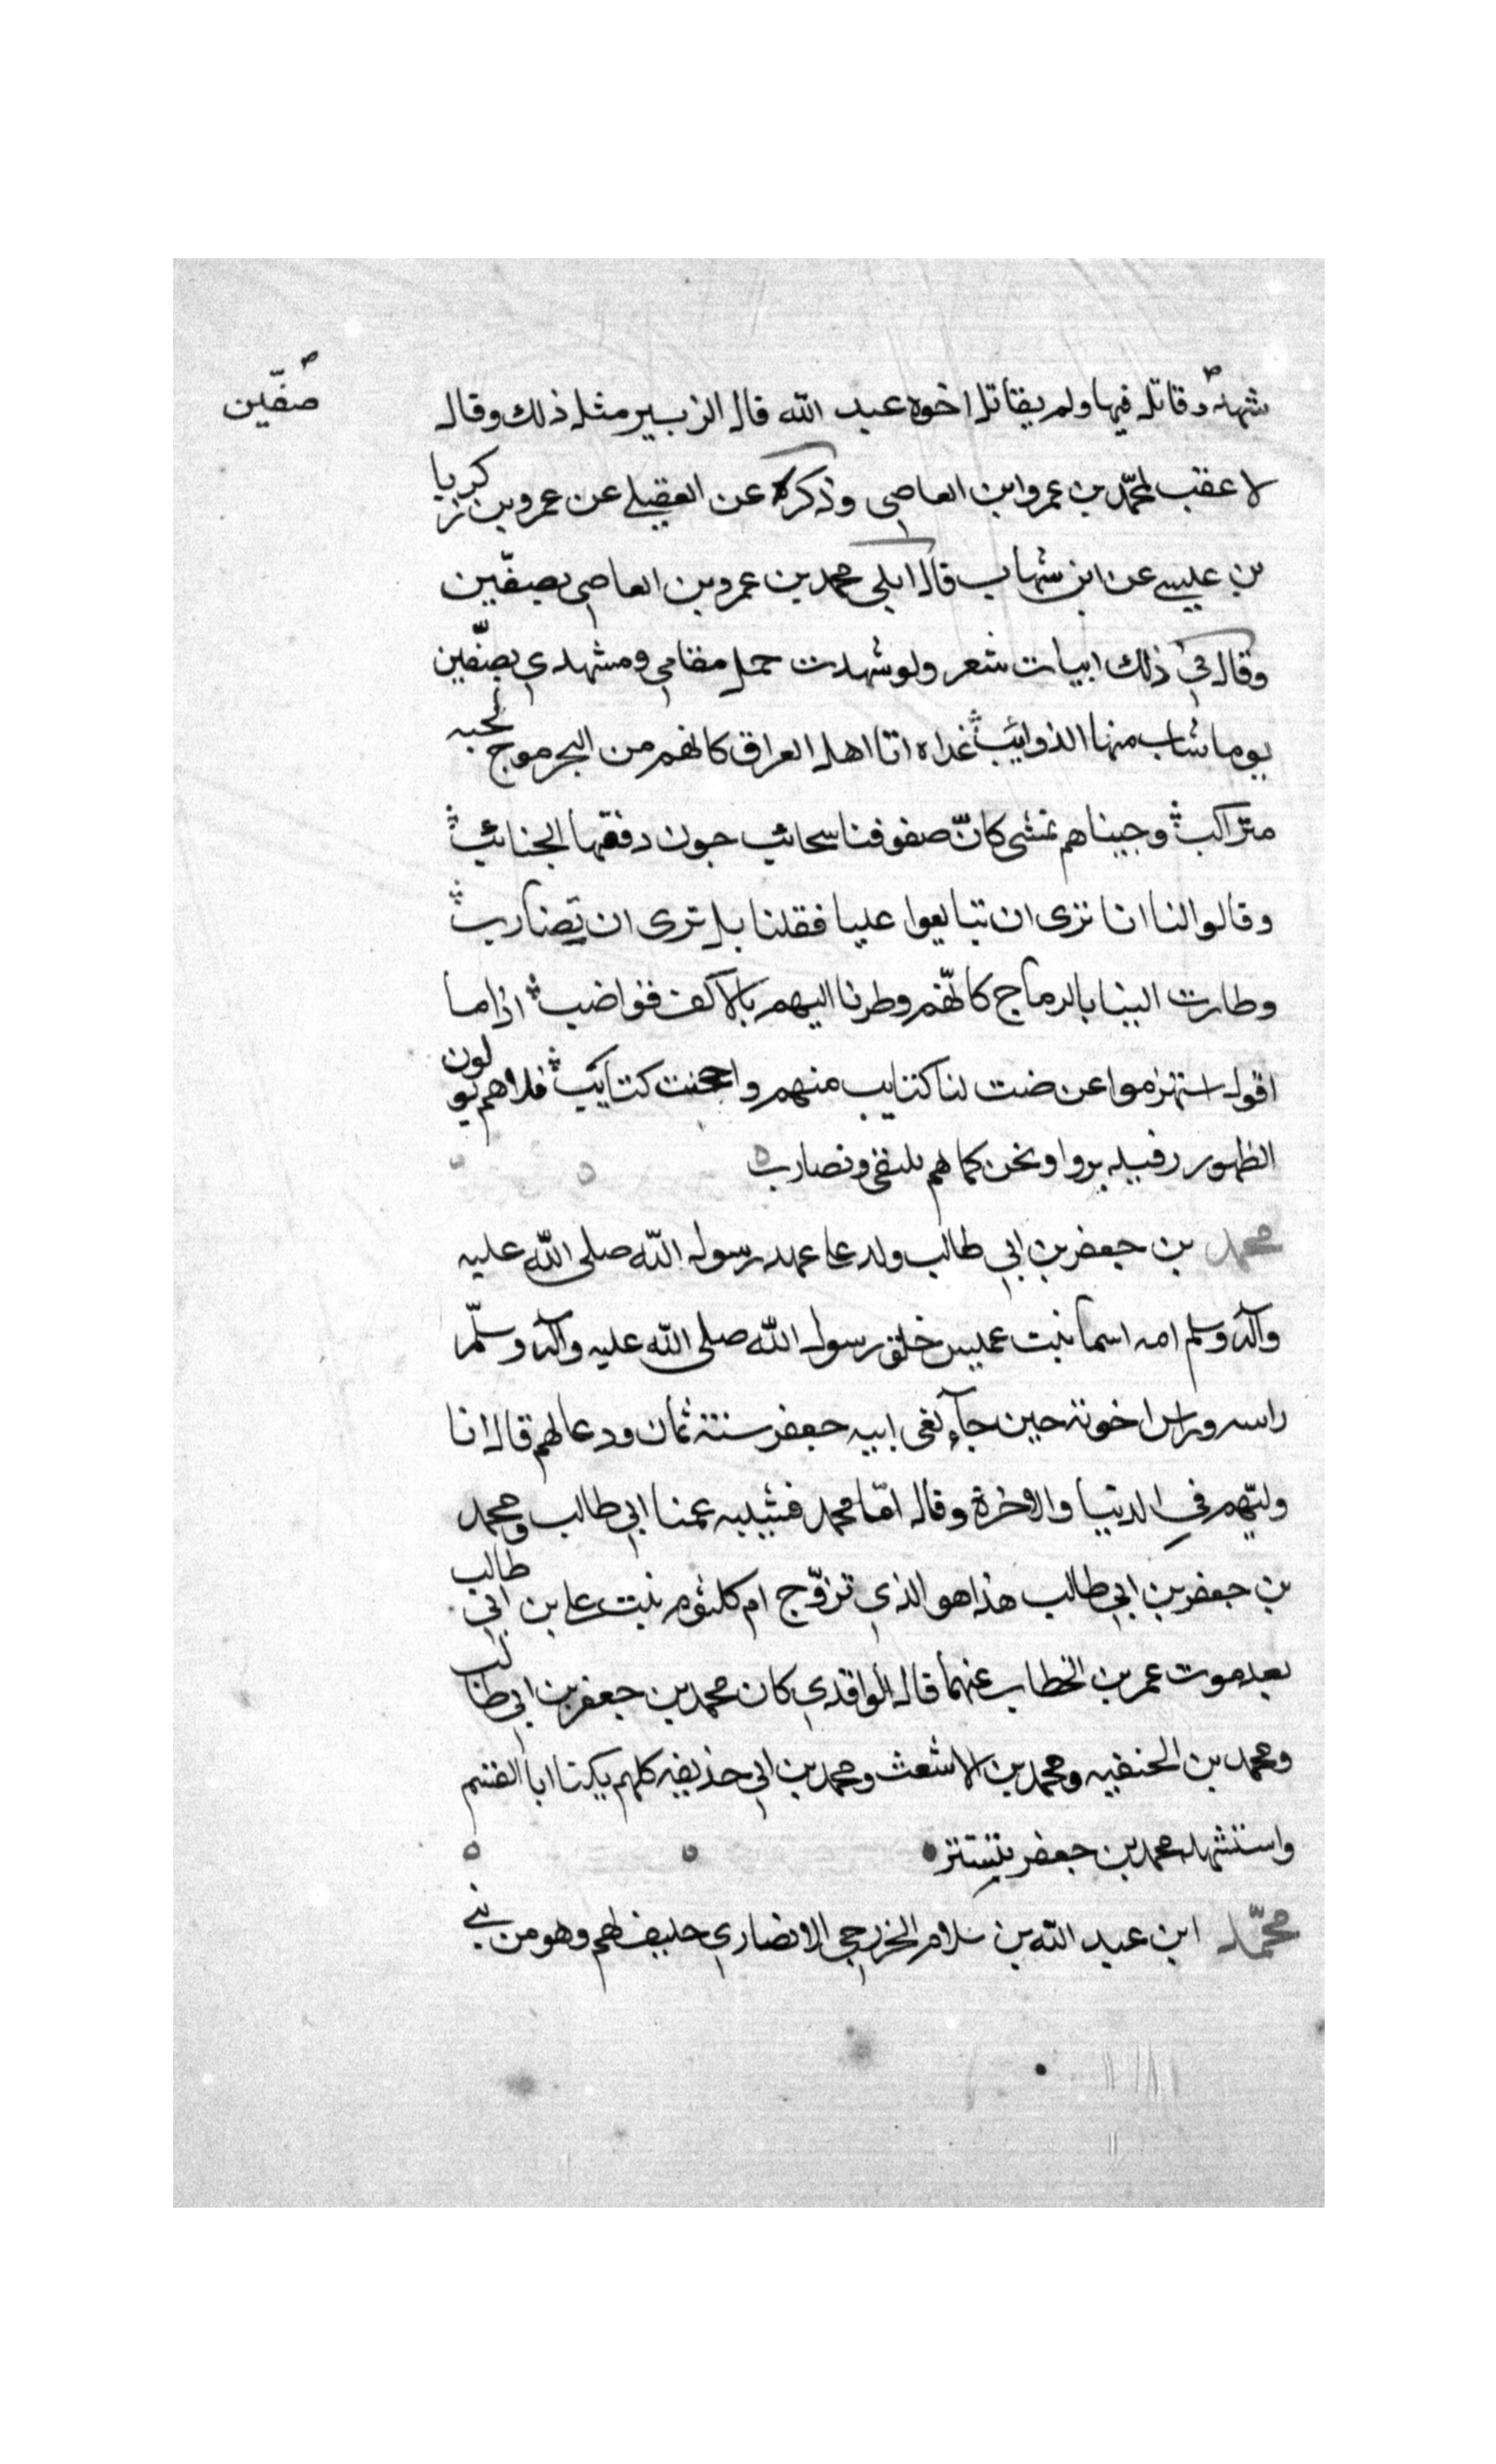 صفّين
شهد وقاتل فيها ولم يقاتل اخوه عبد الله قال الزبير مثل ذلك وقال
لا عقب لمحمّد بن عمرو ابن العاصي وذكره عن العقيلي عن عمرو بن زكريا
بن عليسي عن ابن شهاب قال ابلي محمد بن عمرو بن العاصي بصفّين
وقال في ذلك ابيات شعر ولو شهدت جمل مقامي ومشهدي بصفّين
يوما شاب منها الذوايب غداه اتا اهل العراق كانهم من البحر موج لجبه
متراكب وجيناهم نمشى كانّ صفوفنا سحائب جون دفقها الجنائب
وقالوا لنا انا نرى ان تبايعوا عليا فقلنا بل نرى ان تضارب
وطارت الينا بالرماح كانّهم وطرنا اليهم بالاكف قواضب اذا ما
اقول استهزموا عرضت لنا كتايب منهم واحجنت كتايب فلا هم يولون
الظهور فيدبروا ونحن كما هم نلتقى ونضارب
محمد بن جعفر بن ابي طالب ولد على عهد رسول الله صلى الله عليه
وآله وسلم امه اسما بنت عميس خلق رسول الله صلى الله عليه وآله وسلّم
راسه وراس اخوته حين جآء نعى ابيه جعفر سنة ثمان ودعا لهم قال انا
وليّهم في الدنيا والاخرة وقال امّا محمد فشبيه عمنا ابي طالب ومحمد
بن جعفر بن ابي طالب هذا هو الذي تزوّج ام كلثوم بنت على بن ابي طالب
بعد موت عمر بن الخطاب عنهما قال الواقدي كان محمد بن جعفر بن ابي طالب
ومحمد بن الحنفيه ومحمد بن الاشعث ومحمد بن ابي حذيفه كلهم يكنا ابا القسم
واستشهد محمد بن جعفر بتستر
محمّد ابن عبد الله بن سلام الخزرجي الانصاري حليف لهم وهو من بني